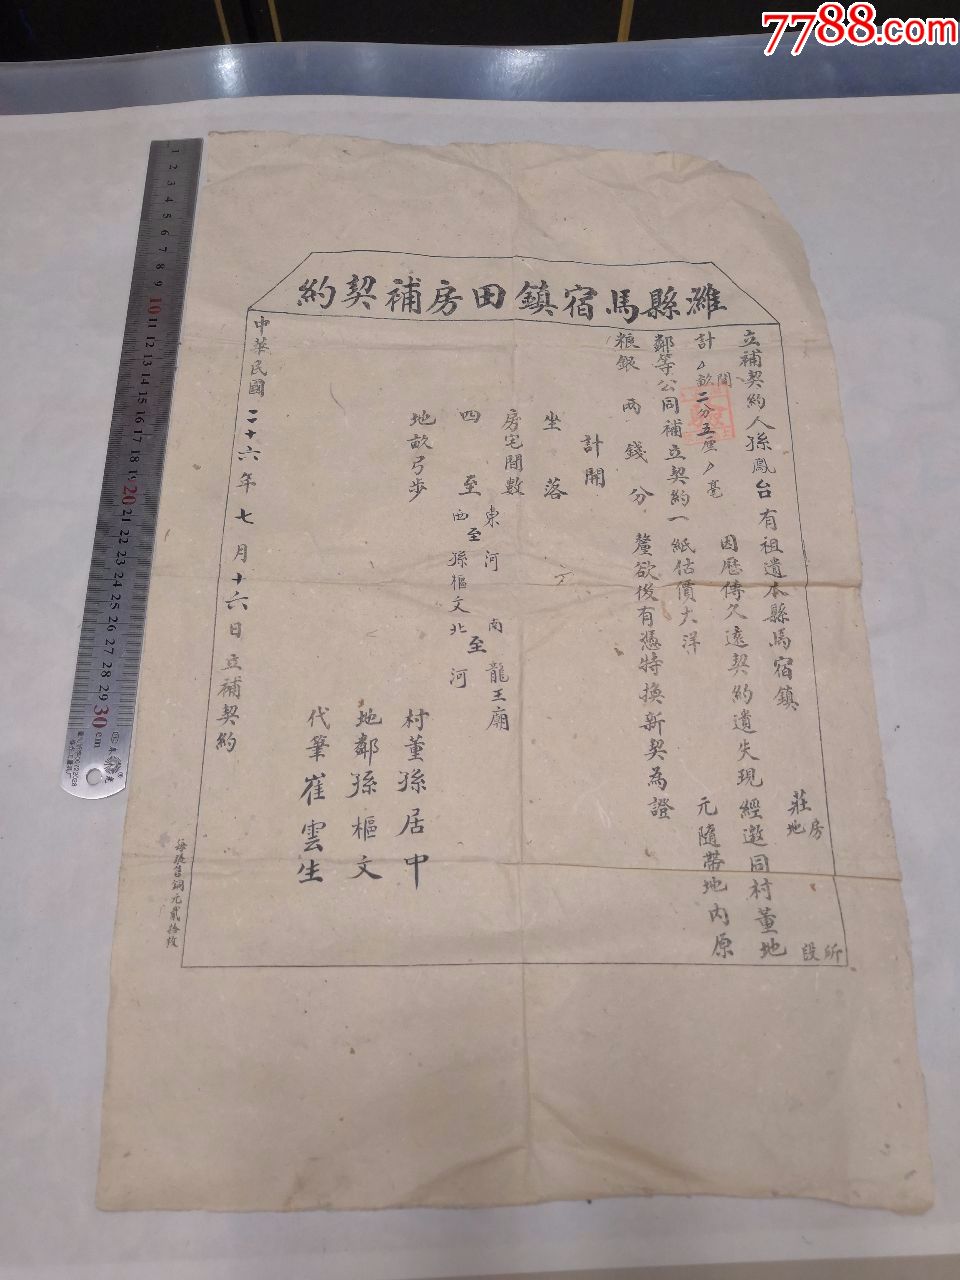 7788.com
濰縣馬宿鎮田房補契約
立補契約人孫鳳台有祖遺本縣馬宿鎮 莊 房地 所段
計 畝間二分五厘 毫 因歷傳久遠契約遺失現經邀同村董地
鄰等公同補立契約一紙估價大洋 元隨帶地內原
粮銀 兩 錢 分 釐欲後有憑特換新契為證
計開
坐落
房宅間數
四至 東河 南龍王廟
西至孫樞文北至河
地畝弓步
村董孫居中
地鄰孫樞文
代筆崔雲生
中華民國二十六年七月十六日立補契約
每張售銅元貳拾枚
1 2 3 4 5 6 7 8 9 10 11 12 13 14 15 16 17 18 19 20 21 22 23 24 25 26 27 28 29 30 cm